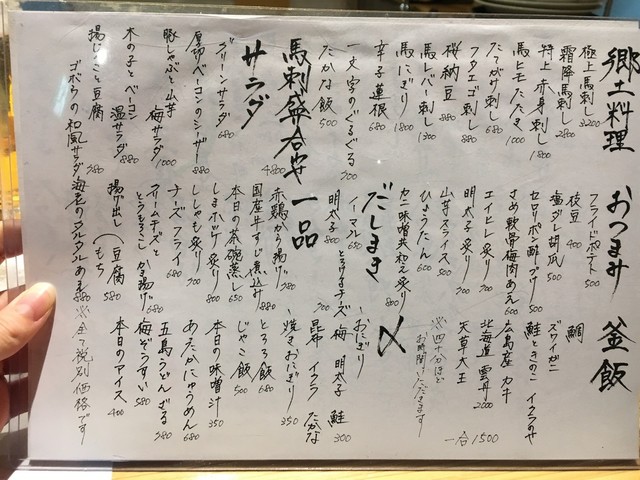 郷土料理
極上馬刺し 3200
霜降馬刺し 2800
特上赤身刺し 1800
馬ヒモたたき 1000
たてがみ刺し 680
フタエゴ刺し 880
桜納豆 880
馬レバー刺し 1300
馬にぎり 1800
辛子蓮根 680
一文字のぐるぐる 500
たかな飯 500
馬刺盛合せ 4800
サラダ
グリーンサラダ 680
厚切ベーコンのシーザー 880
豚しゃぶと山芋 梅サラダ 1000
木の子とベーコン 温サラダ 880
揚じゃこと豆腐 780
ゴボウの和風サラダ
おつまみ
フライドポテト 500
枝豆 400
塩ダレ胡瓜 500
セロリポン酢づけ 500
さめ軟骨梅肉あえ 600
エイヒレ炙り 700
明太子炙り 700
山芋スライス 500
ひょうたん 600
カニ味噌共和え炙り 800
だしまき
ノーマル 650
明太子 800
とろけるチーズ 700
一品
赤鶏から揚げ 780
国産牛すじ煮込み 880
本日の茶碗蒸し 650
しまホッケ炙り 800
ししゃも炙り 700
チーズフライ 680
クリームチーズと
とうもろこしかき揚げ 680
揚げ出し(もち 豆腐 580
海老のタルタルあえ 880
釜飯
鯛
ズワイガニ
鮭ときのこ イクラのせ
広島産カキ
北海道雲丹 2000
天草大王
一合 1500
※四十分ほど
お時間いただきます
〆
おにぎり
梅 明太子 鮭 300
昆布 イクラ たかな
焼きおにぎり 350
とろろ飯 680
じゃこ飯 500
本日の味噌汁 350
あたたかにゅうめん 680
五島うどんざる 780
梅ぞうすい 580
本日のアイス 400
※全て税別価格です